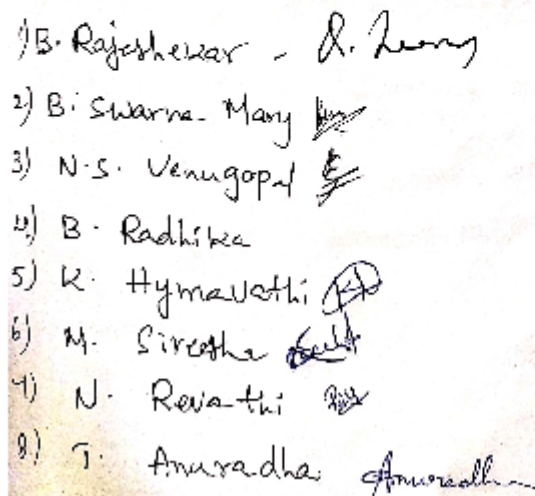 1) B. Rajeshekar -
2) B. Swarna Mary
3) N.S. Venugopal
4) B. Radhika
5) K. Hymavathi
6) M. Sireesha
7) N. Revathi
8) T. Anuradha Anuradha